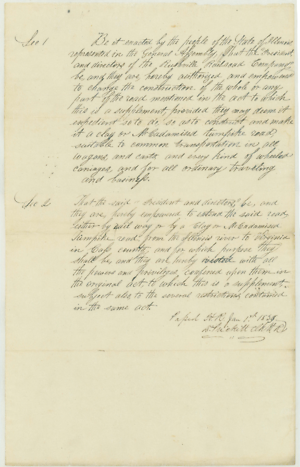 Sec 1 Be it enacted by the people of the State of Illinois
represented in the General Assembly, That the President
and directors of the Rushville Railroad Company
be, and they are hereby authorized and empowered
to change the construction of the whole or any
part of the road mentioned in the act to which
this is a supplement, provided they may deem it
expedient so to do, so as to construct and make
it a clay or McAdamised turnpike road,
suitable to common transportation in
wagons, and carts and every kind of wheeled
carriages, and for all ordinary traveling
and business.
Sec 2 That the said President and directors, be, and
they are, hereby empowered to extend the said road,
either by rail way or by a Clay or McAdamised
Turnpike road, from the Illinois river to Virginia
in Cass county, and for which purpose they
shall be and they are hereby vested with all
the powers and privileges, confered upon them in
the original act to which this is a supplement,
subject also to the several restrictions contained
in the same act.
Passed H. R. Jan 1st 1839.